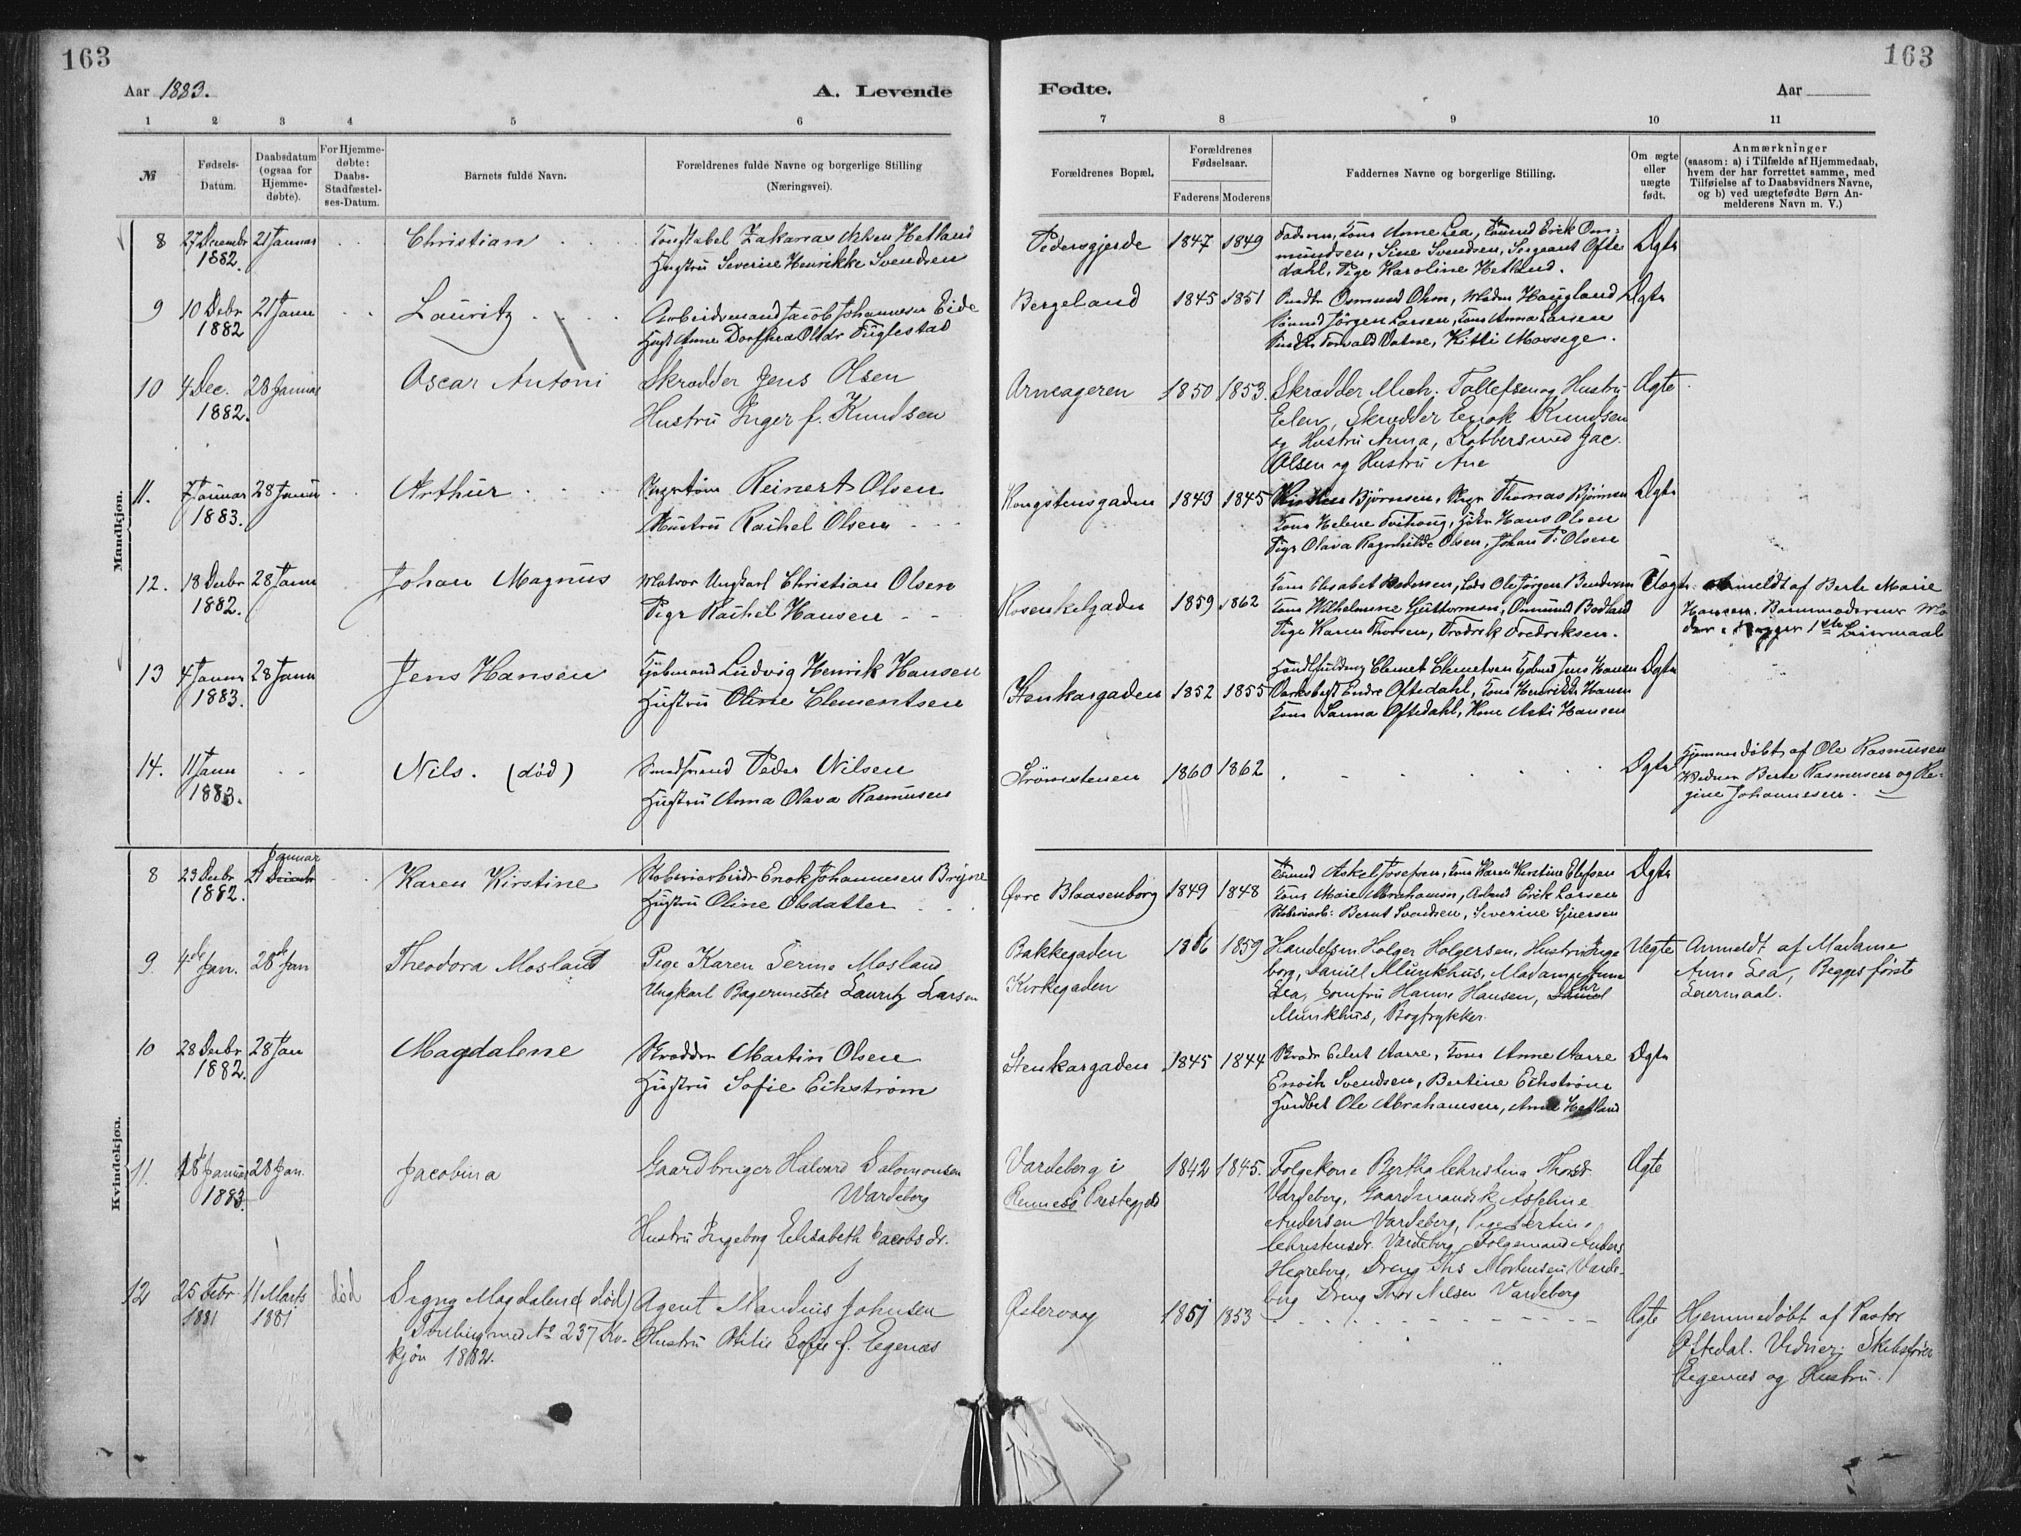 163
163
Aar 1883.
A. Levende
Fødte.
Aar
1 2 3 4 5 6 7 8 9 10 11
№
Fødsels-
Datum.
Daabsdatum
(ogsaa for
Hjemme-
døbte).
For Hjemme-
døbte:
Daabs-
Stadfæstel-
ses-Datum.
Barnets fulde Navn.
Forældrenes fulde Navne og borgerlige Stilling
(Næringsvei).
Forældrenes Bopæl.
Forældrenes
Fødselsaar.
Faderens Moderens
Faddernes Navne og borgerlige Stilling.
Om ægte
eller
uægte
født.
Anmærkninger
(saasom: a) i Tilfælde af Hjemmedaab,
hvem der har forrettet samme, med
Tilføielse af to Daabsvidners Navne,
og b) ved uægtefødte Børn An-
melderens Navn m. V.)
Mandkjøn.
8 27 Decembr 21 Januar
1882.
Christian
Zakarias Hetland
Hustru Severine Henrikke Svendsen
Pedersgjerde 1847 1849
Anne Lea, Erik Om-
mundsen, Sine Svendsen, Sergeant Ofte
dahl, Pige Karoline Hetland.
Ægte
9 10 Decbr 21 Janu
1882
Lauritz
Arbeidsmand Jacob Johannesen Eide
Hust Anne Dorthea Olsdr Fuglestad
Bergeland 1845 1851
Osmund Ohm, Haugland
Jørgen Larsen, Anna Larsen
Torvald Vatne, Kitti Mossege.
Ægte
10 4 Dec. 28 Januar
1882.
Oscar Antoni
Skrædder Jens Olsen
Hustru Inger f. Knudsen
Arneageren 1850 1853.
Skrædder Mich. Tollefsen og Hustru
Elen, Skrædder Enok Knudsen
og Hustru Anna, Kobbersmed Jac.
Olsen og Hustru Ane
Ægte
11. 7 Januar 28 Januar
1883.
Arthur
Reinert Olsen
Hustru Rachel Olsen
Kongstensgaden 1843 1845
Bjørnsen, Thomas Bjørnsen
Helene Tveihoug, Hans Olsen
Pige Olava Ragnhilde Olsen, Johan P. Olsen
Ægte
12. 18 Decbr 28 Janu
1882.
Johan Magnus
Matros Ungkarl Christian Olsen
Pige Rachel Hansen
Rosenkelgaden 1859 1862
Elisabet Pedersen, Ole Jørgen Bendixsen
Wilhelmine Guttormsen, Osmund Bodland
Pige Karen Thorsen, Fredrik Fredriksen.
Uægte
Anmeldt af Berte Marie
Hansen. Barnmoderens Mo
der. Begges 1ste Leiermaal
13 4 Janu 28 Janu
1883.
Jens Hansen
Kjøbmand Ludvig Henrik Hansen
Hustru Oline Clementsen
Stenkargaden 1852 1855
Clemet Clemetsen Jens Hansen
Endre Oftedahl, Henrikke Hansen
Sanna Oftedahl, Kone Asti Hansen
Ægte
14. 11 Janu
1883.
Nils. (død)
Peder Nilsen
Hustru Anna Olava Rasmusen
Strømstenen 1860 1862
Ægte
Hjemmedøbt af Ole Rasmusen
Vidner Berte Rasmusen og Re-
gine Johannesen.
Kvindekjøn.
8 23 Decbr 21 Januar
1882.
Karen Kirstine
Enok Johannesen Bryne
Hustru Oline Olsdatter
Øvre Blaasenborg 1849 1848
Askel Josefsen, Karen Kirstine Elefsen
Marie Abrahamsen, Erik Larsen
Bernt Svendsen, Severine Sjursen
Ægte
9. 4de Jan. 28de Jan
Theodora Mosland
Pige Karen Serine Mosland
Ungkarl Bagermester Lauritz Larsen
Bakkegaden
Kirkegaden
1859
Handelsm. Holger Holgersen, Hustru Inge
borg, Daniel Munkhus, Madame Anne
Lea, Jomfru Hanne Hansen,
Munkhus, Bogtrykker.
Uegte
Anmeldt af Madame
Anne Lea, Begges første
Leiermaal.
10 28 Decbr 28 Jan
1882.
Magdalene
Skrædder Martin Olsen
Hustru Sofie Eikstrøm
Stenkargaden 1845 1844
Eilert Aarre, Anne Aarre
Enoch Svendsen, Bertine Eikstrøm
Ole Abrahamsen, Anna Hetland
Ægte
11. 18 Januar 28 Jan.
1883.
Jacobina
Gaardbruger Halvard Salomonsen
Wardeberg
Hustru Ingeborg Elisabeth Jacobsdr.
Vardeberg i
Rennesø Prestegjeld
1842 1845.
Folgekone Bertha Christina Thorsdr.
Vardeberg, Gaardmandsk. Asseline
Andersen Vardeberg, Pige Sertine
Christensdr. Vardeberg, Folgemand Anders
Hegreberg, Dreng Ths Mortensen Varde-
berg Dreng Thor Nilsen Vardeberg
Ægte
12 25 Febr 11 Marts død
1881 1881
Signy Magdalene (død)
Tvilling med № 237 Kv.
kjøn 1882.
Agent Mandius Johnsen
Hustru Otilie Sofie f. Egenæs
Østervaag 1851 1853
Ægte
Hjemmedøbt af Pastor
Oftedal. Vidner: Skibsfører
Egenæs og Hustru.